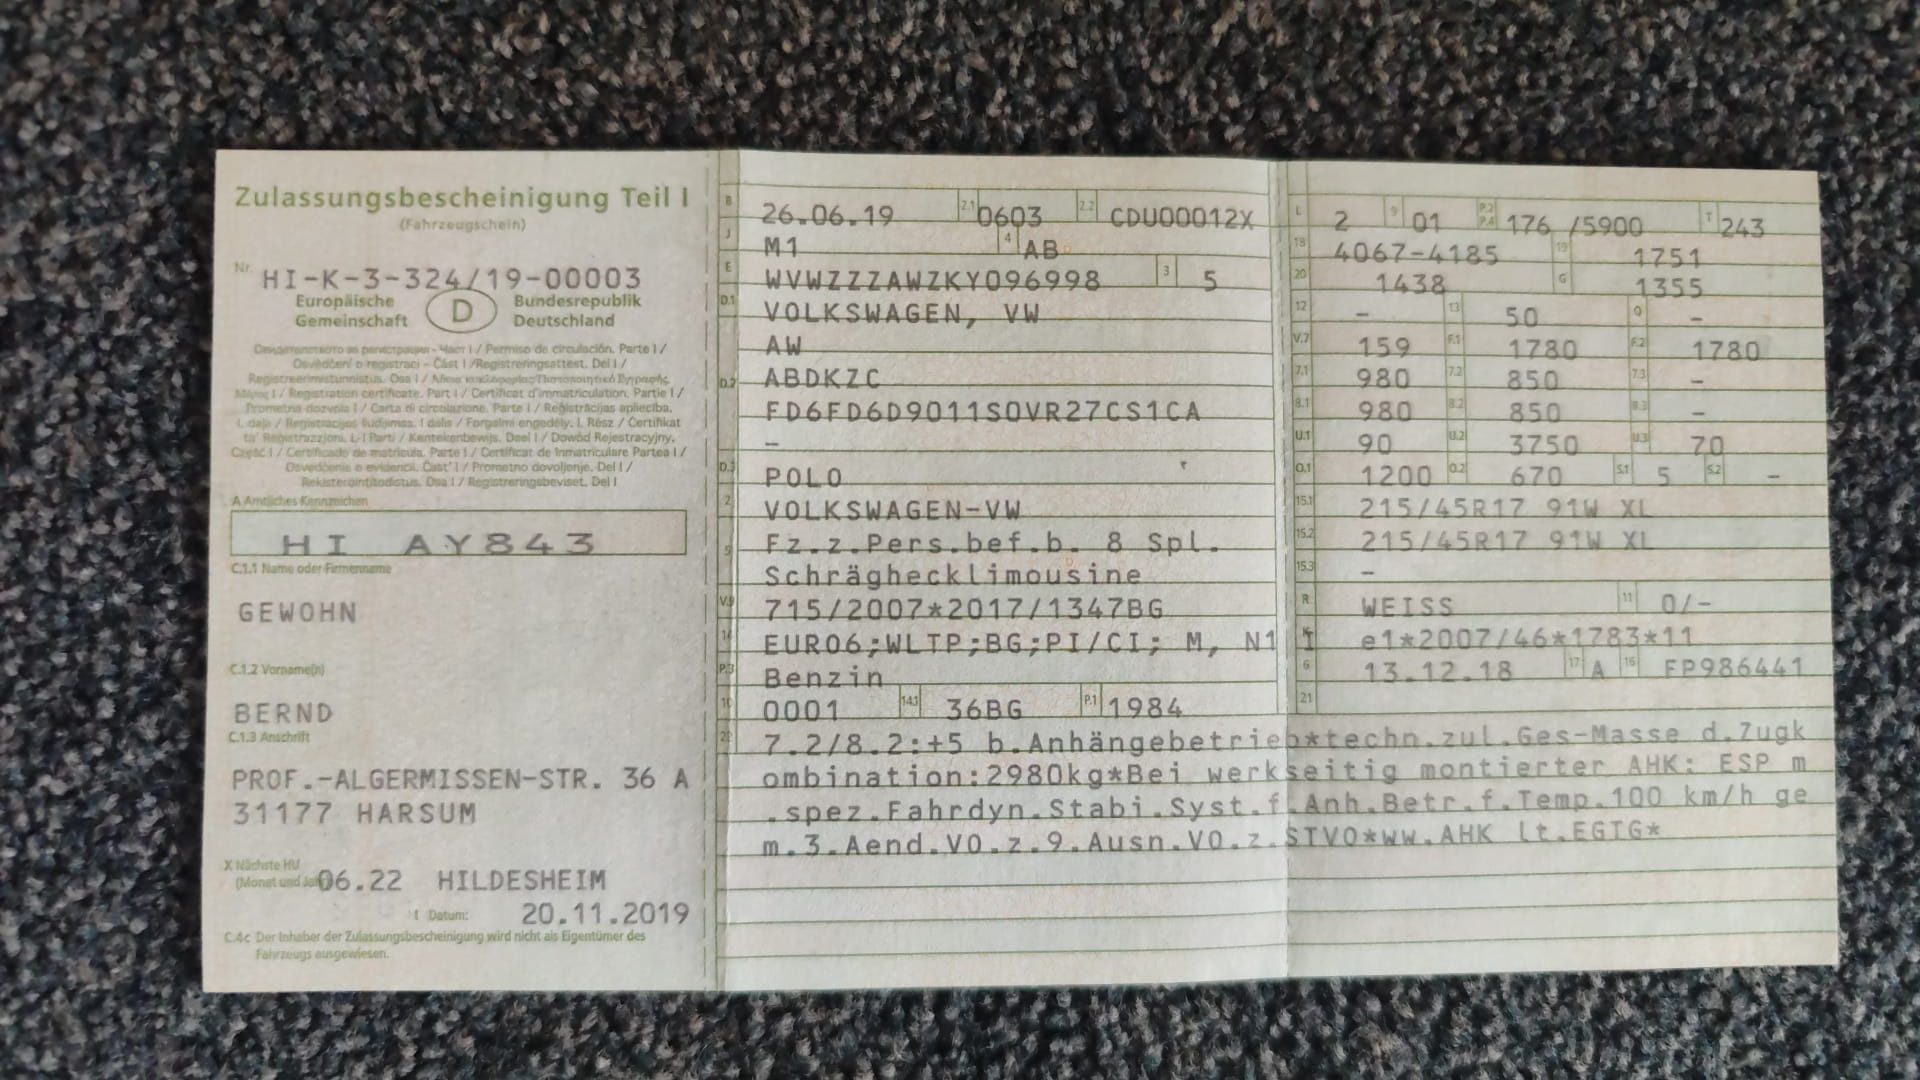 Zulassungsbescheinigung Teil I
(Fahrzeugschein)
Nr. HI-K-3-324/19-00003
Europäische Gemeinschaft D Bundesrepublik Deutschland
Permiso de circulación. Parte I /
Osvědčení o registraci - Část I / Registreringsattest. Del I /
Registreerimistunnistus. Osa I /
Registration certificate. Part I / Certificat d'immatriculation. Partie I /
Prometna dozvola I / Carta di circolazione. Parte I / Reģistrācijas apliecība.
I. daļa / Registracijos liudijimas. I dalis / Forgalmi engedély. I. Rész / Ċertifikat
ta' Reġistrazzjoni. L-I Parti / Kentekenbewijs. Deel I / Dowód Rejestracyjny.
Część I / Certificado de matrícula. Parte I / Certificat de înmatriculare Partea I /
Osvedčenie o evidencii. Časť I / Prometno dovoljenje. Del I /
Rekisteröintitodistus. Osa I / Registreringsbeviset. Del I
A Amtliches Kennzeichen
HI AY843
C.1.1 Name oder Firmenname
GEWOHN
C.1.2 Vorname(n)
BERND
C.1.3 Anschrift
PROF.-ALGERMISSEN-STR. 36 A
31177 HARSUM
X Nächste HU
(Monat und 06.22 HILDESHEIM
I Datum: 20.11.2019
C.4c Der Inhaber der Zulassungsbescheinigung wird nicht als Eigentümer des
Fahrzeugs ausgewiesen.
B 26.06.19 2.1 0603 2.2 CDU00012X
J M1 4 AB
E WVWZZZAWZKY096998 3 5
D.1 VOLKSWAGEN, VW
AW
D.2 ABDKZC
FD6FD6D9011S0VR27CS1CA
-
D.3 POLO
2 VOLKSWAGEN-VW
5 Fz.z.Pers.bef.b. 8 Spl.
Schräghecklimousine
V.9 715/2007*2017/1347BG
14 EURO6;WLTP;BG;PI/CI; M, N1 I
P.3 Benzin
10 0001 14.1 36BG P.1 1984
L 2 9 01 P.2 P.4 176 /5900 T 243
18 4067-4185 19 1751
20 1438 G 1355
12 - 13 50 Q -
V.7 159 F.1 1780 F.2 1780
7.1 980 7.2 850 7.3 -
8.1 980 8.2 850 8.3 -
U.1 90 U.2 3750 U.3 70
O.1 1200 O.2 670 S.1 5 S.2 -
15.1 215/45R17 91W XL
15.2 215/45R17 91W XL
15.3 -
R WEISS 11 0/-
K e1*2007/46*1783*11
6 13.12.18 17 A 16 FP986441
21
22 7.2/8.2:+5 b.Anhängebetrieb*techn.zul.Ges-Masse d.Zugk
ombination:2980kg*Bei werkseitig montierter AHK: ESP m
.spez.Fahrdyn.Stabi.Syst.f.Anh.Betr.f.Temp.100 km/h ge
m.3.Aend.VO.z.9.Ausn.VO.z.STVO*ww.AHK lt.EGTG*